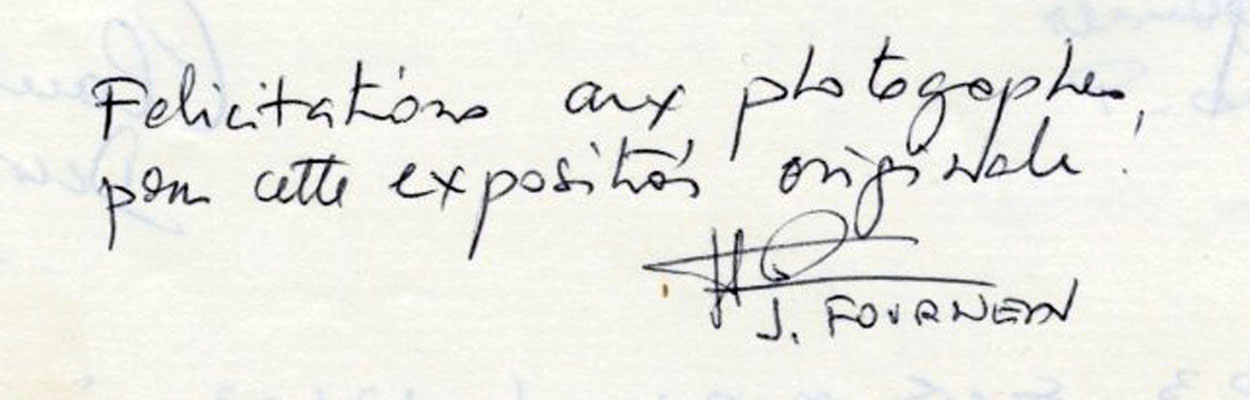 Felicitations aux photographes,
pour cette exposition originale !
J. FOURNEAU